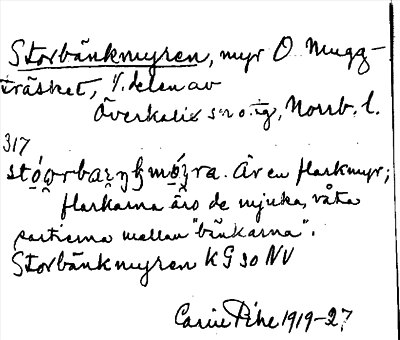 Storbänkmyren, myr O. Mugg-
träsket, i/. delen av
Överkalix sn o. tg, Norrb. l.
317
Är en flarkmyr;
flarkarna äro de mjuka, våta
partierna mellan "bänkarna".
Storbänkmyren KG 50 NV
Carin Pihl 1919-27